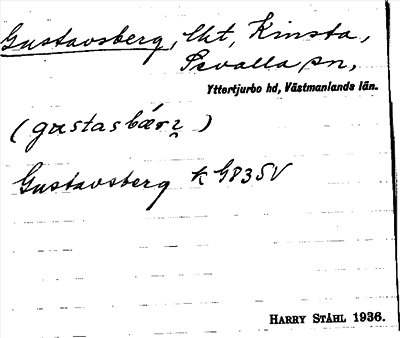 Gustavsberg, lht, Kinsta,
Svalla sn,
Yttertjurbo hd, Västmanlands län.
(gustasbærɪ̯)
Gustavsberg k G835V
HARRY STÅHL 1936.